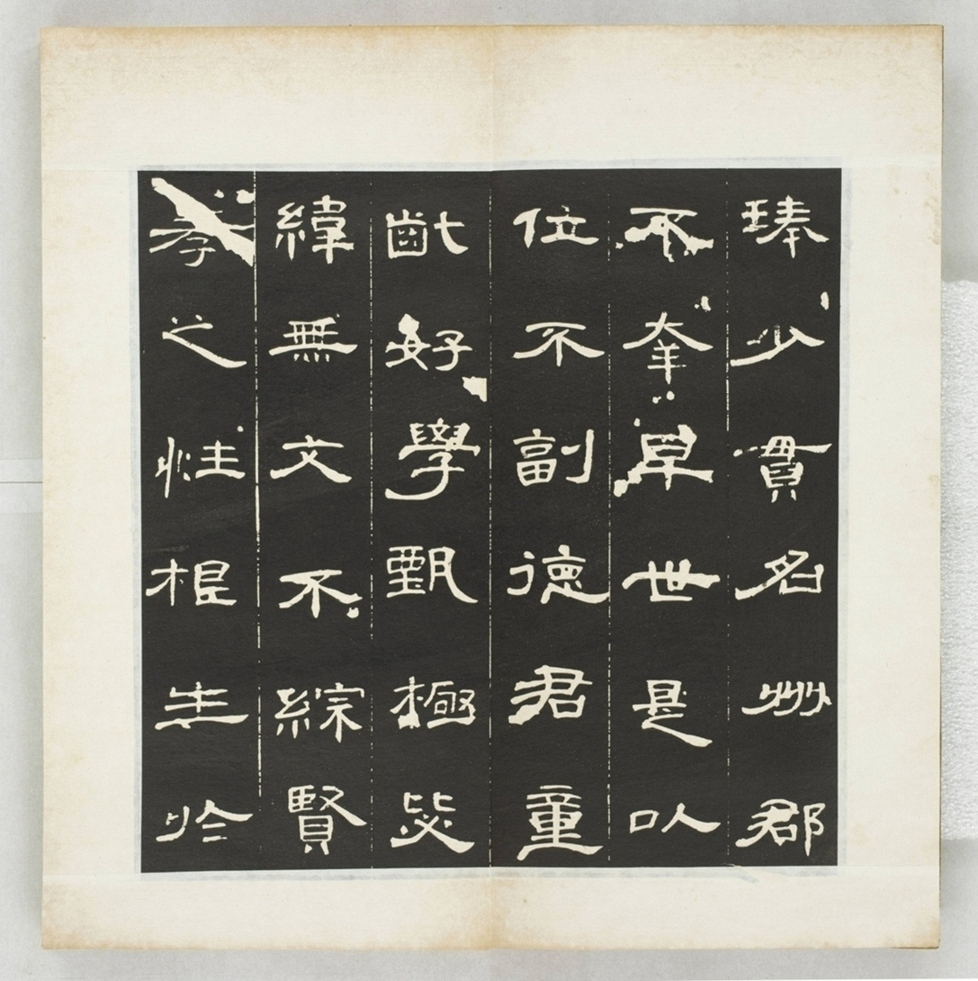 琫少貫名州郡
不幸早世是以
位不副德君童
齔好學甄極毖
緯無文不綜賢
孝之性根生於